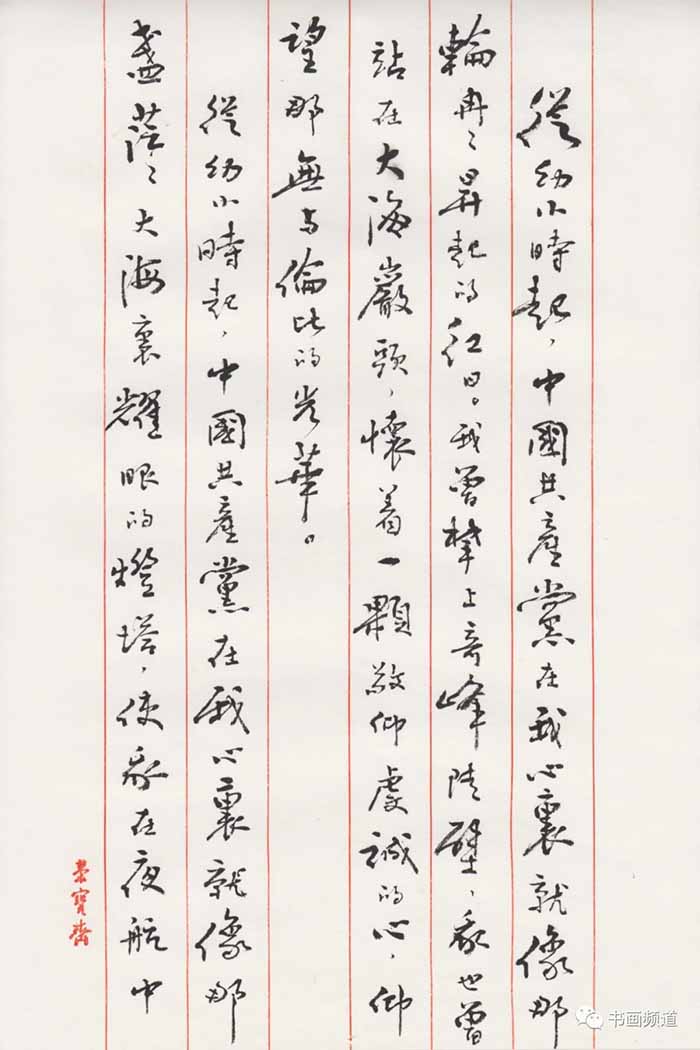 從幼小時起，中國共產黨在我心裏就像那
輪冉〻昇起的紅日。我曾攀上奇峰陡壁，我也曾
站在大海巖頭，懷着一顆敬仰虔誠的心，仰
望那無与倫比的光華。
從幼小時起，中國共產黨在我心裏就像那
盞茫〻大海裏耀眼的燈塔，使我在夜航中
榮寶齋
书画频道